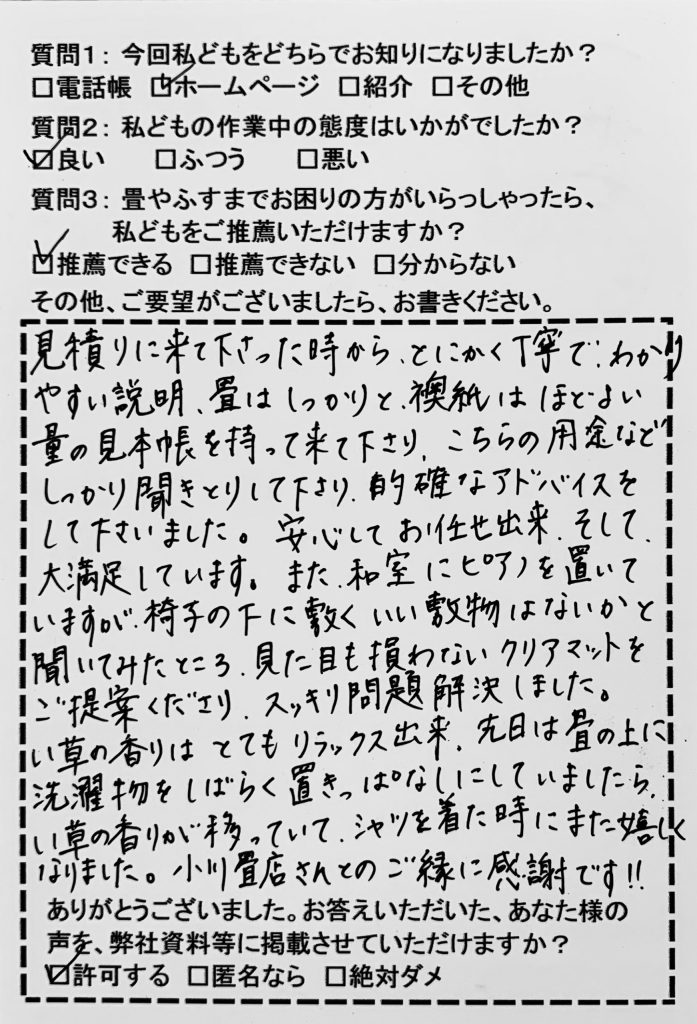 質問1：今回私どもをどちらでお知りになりましたか？
□電話帳 ☑ホームページ □紹介 □その他
質問2：私どもの作業中の態度はいかがでしたか？
☑良い □ふつう □悪い
質問3：畳やふすまでお困りの方がいらっしゃったら、
私どもをご推薦いただけますか？
☑推薦できる □推薦できない □分からない
その他、ご要望がございましたら、お書きください。
見積りに来て下さった時から、とにかく丁寧で、わかり
やすい説明、畳はしっかりと、襖紙はほどよい
量の見本帳を持って来て下さり、こちらの用途など
しっかり聞きとりして下さり、的確なアドバイスを
して下さいました。安心してお任せ出来、そして、
大満足しています。また、和室にピアノを置いて
いますが、椅子の下に敷くいい敷物はないかと
聞いてみたところ、見た目も損わないクリアマットを
ご提案くださり、スッキリ問題解決しました。
い草の香りはとてもリラックス出来、先日は畳の上に
洗濯物をしばらく置きっぱなしにしていましたら、
い草の香りが移っていて、シャツを着た時にまた嬉しく
なりました。小川畳店さんとのご縁に感謝です!!
ありがとうございました。お答えいただいた、あなた様の
声を、弊社資料等に掲載させていただけますか？
☑許可する □匿名なら □絶対ダメ